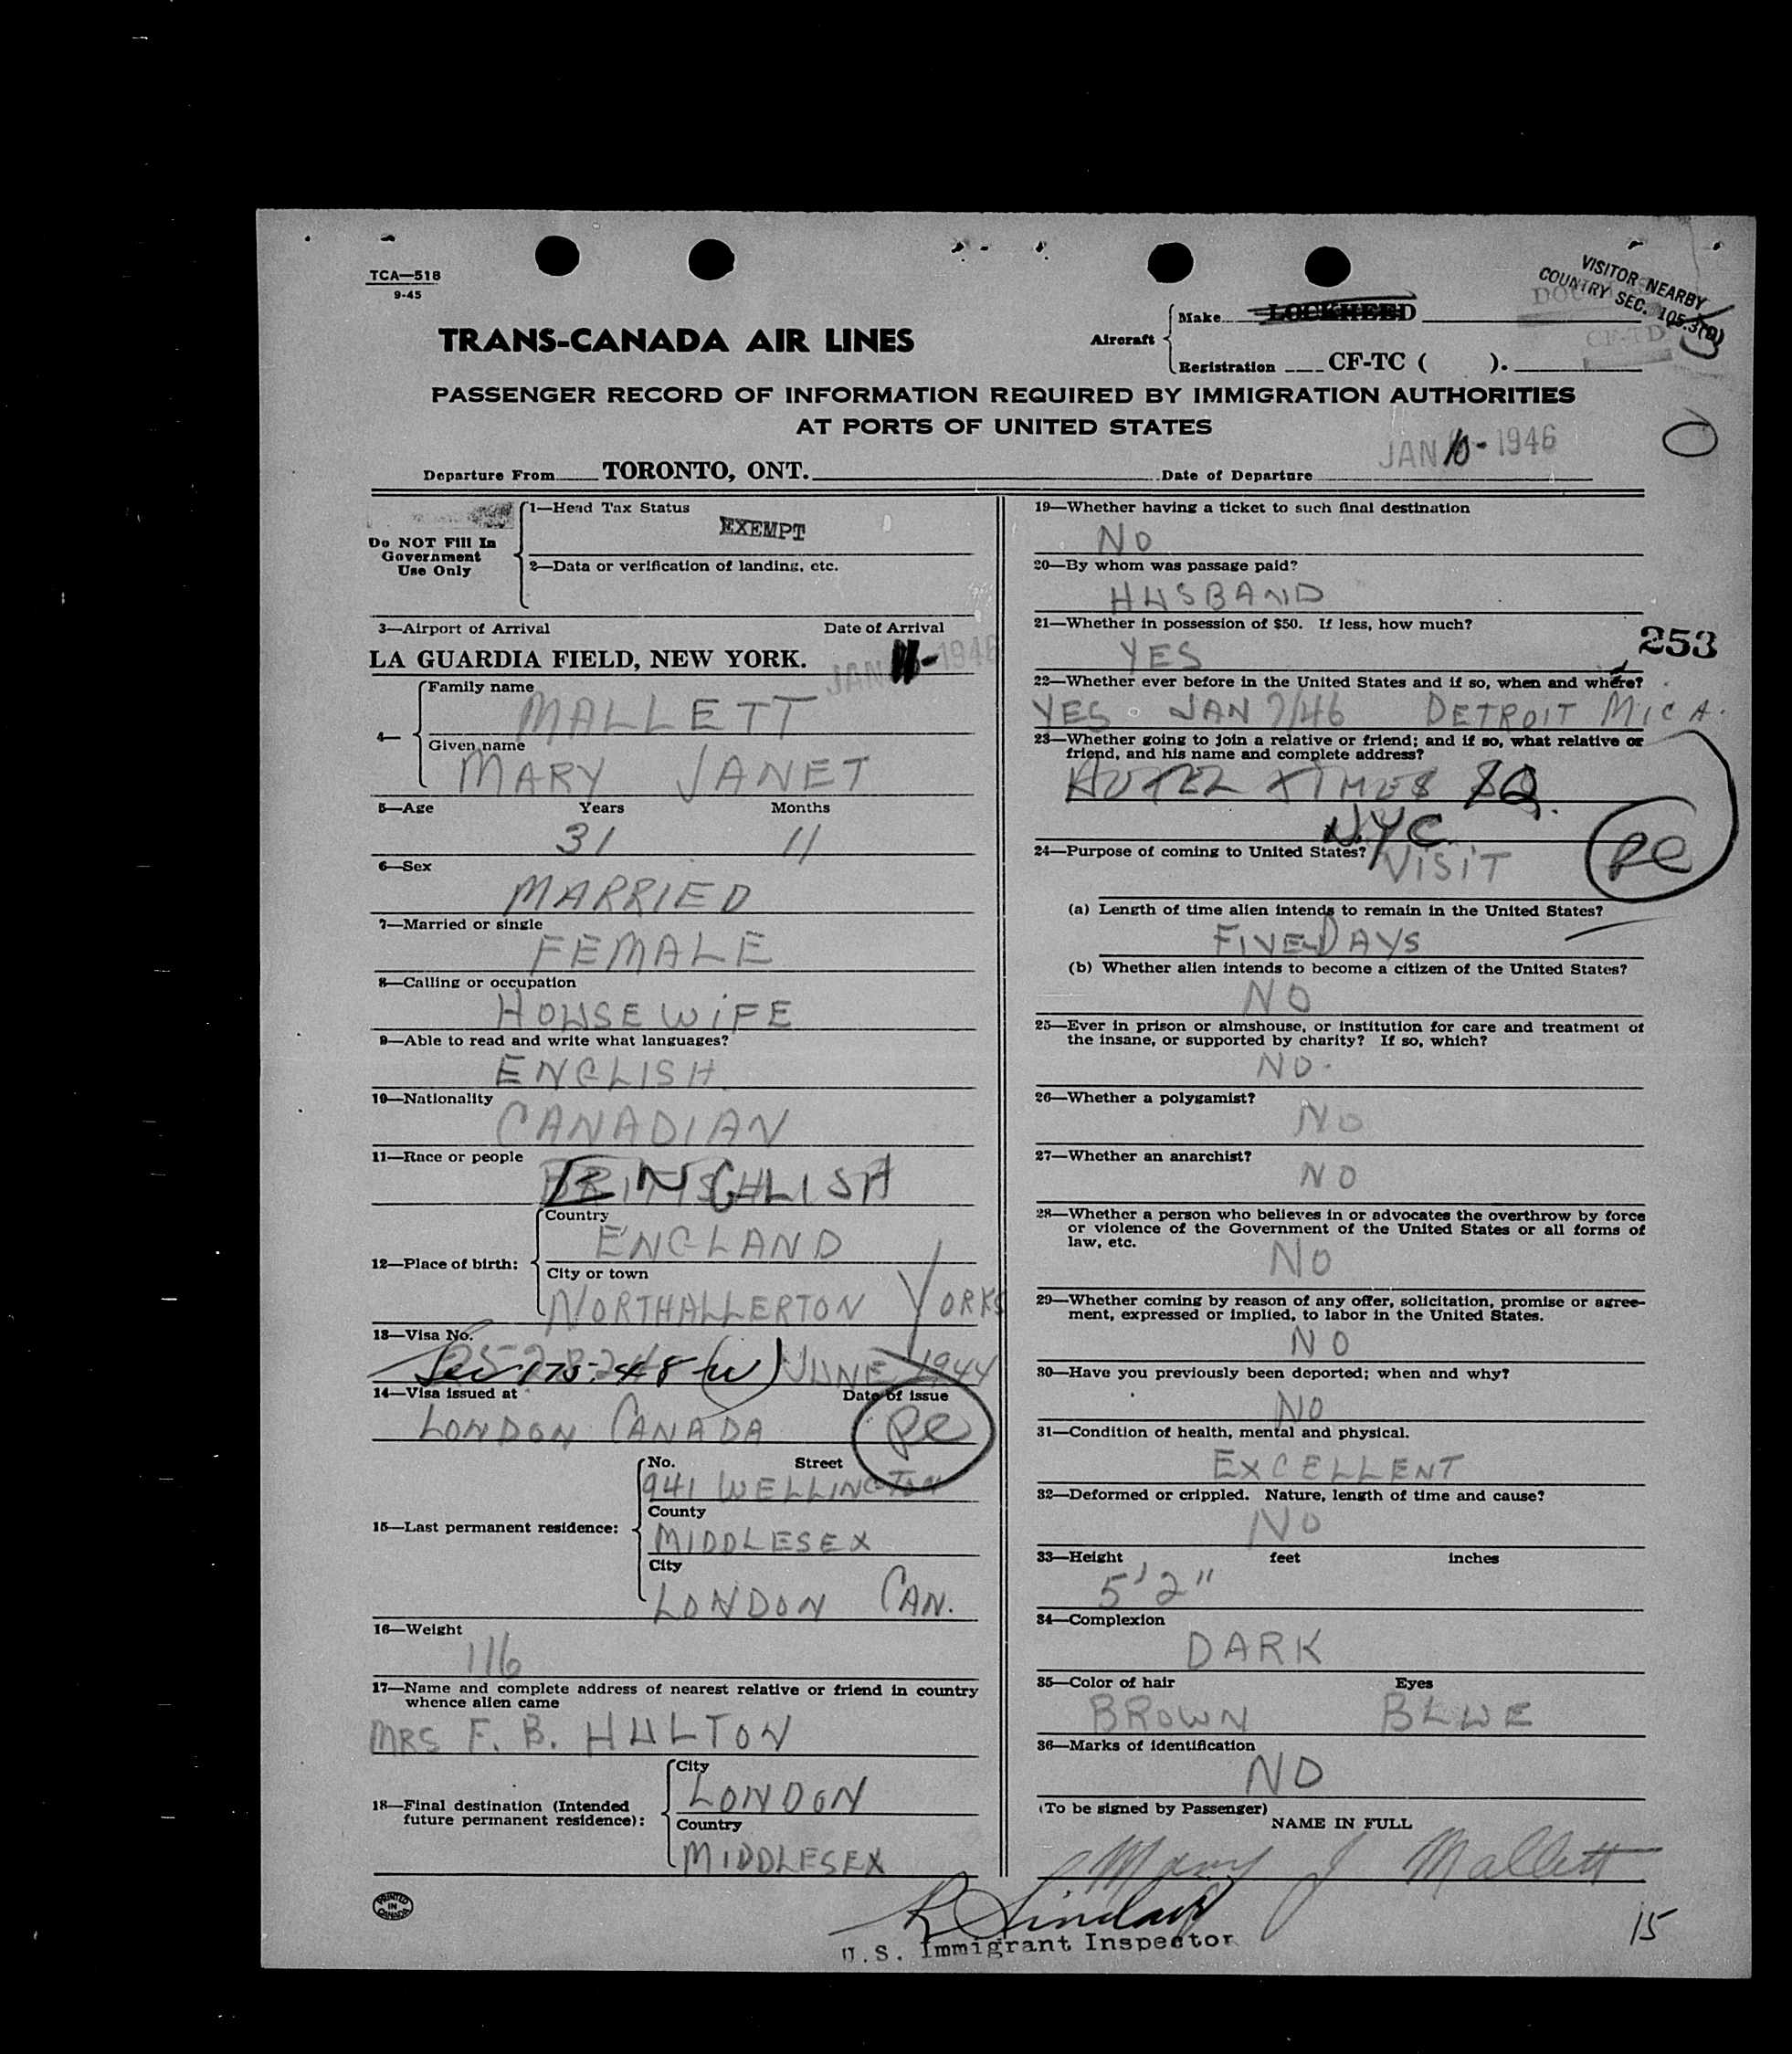 TCA—518
9-45
VISITOR-NEARBY
COUNTRY SEC. 105.3(2)
TRANS-CANADA AIR LINES
Aircraft
Make LOCKHEED
Registration CF-TC ( ).
CF-TD
PASSENGER RECORD OF INFORMATION REQUIRED BY IMMIGRATION AUTHORITIES
AT PORTS OF UNITED STATES
Departure From TORONTO, ONT.
Date of Departure JAN 10-1946
Do NOT Fill In
Government
Use Only
1—Head Tax Status
EXEMPT
2—Data or verification of landing, etc.
3—Airport of Arrival Date of Arrival
LA GUARDIA FIELD, NEW YORK. JAN 11-1946
4—
Family name
MALLETT
Given name
MARY JANET
5—Age Years Months
31 11
6—Sex
MARRIED
7—Married or single
FEMALE
8—Calling or occupation
HOUSEWIFE
9—Able to read and write what languages?
ENGLISH
10—Nationality
CANADIAN
11—Race or people
ENGLISH
12—Place of birth:
Country
ENGLAND
City or town
NORTHALLERTON YORKS
13—Visa No.
Sec 175.48 (w) JUNE 1944
14—Visa issued at Date of issue
LONDON CANADA
15—Last permanent residence:
No. Street
941 WELLINGTON
County
MIDDLESEX
City
LONDON CAN.
16—Weight
116
17—Name and complete address of nearest relative or friend in country
whence alien came
MRS F. B. HULTON
18—Final destination (Intended
future permanent residence):
City
LONDON
Country
MIDDLESEX
PRINTED
IN
CANADA
19—Whether having a ticket to such final destination
NO
20—By whom was passage paid?
HUSBAND
21—Whether in possession of $50. If less, how much?
YES
253
22—Whether ever before in the United States and if so, when and where?
YES. JAN 7/46 DETROIT MICH.
23—Whether going to join a relative or friend; and if so, what relative or
friend, and his name and complete address?
HOTEL TIMES SQ.
N.Y.C.
24—Purpose of coming to United States?
VISIT
(a) Length of time alien intends to remain in the United States?
FIVE DAYS
(b) Whether alien intends to become a citizen of the United States?
NO
25—Ever in prison or almshouse, or institution for care and treatment of
the insane, or supported by charity? If so, which?
NO.
26—Whether a polygamist?
NO
27—Whether an anarchist?
NO
28—Whether a person who believes in or advocates the overthrow by force
or violence of the Government of the United States or all forms of
law, etc.
NO
29—Whether coming by reason of any offer, solicitation, promise or agree-
ment, expressed or implied, to labor in the United States.
NO
30—Have you previously been deported; when and why?
NO
31—Condition of health, mental and physical.
EXCELLENT
32—Deformed or crippled. Nature, length of time and cause?
NO
33—Height feet inches
5' 2"
34—Complexion
DARK
35—Color of hair Eyes
BROWN BLUE
36—Marks of identification
NO
(To be signed by Passenger)
NAME IN FULL
Mary J Mallett
R Sinclair
U.S. Immigrant Inspector
15